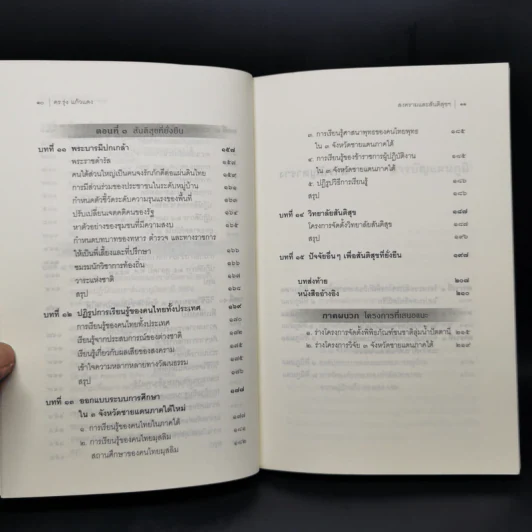 ๑๐ | ดร.รุ่ง แก้วแดง
ตอนที่ ๓ สันติสุขที่ยั่งยืน
บทที่ ๑๑ พระบารมีปกเกล้า ๑๕๗
พระราชดำรัส ๑๕๘
คนใต้ส่วนใหญ่เป็นคนจงรักภักดีต่อแผ่นดินไทย ๑๕๙
การมีส่วนร่วมของประชาชนในระดับหมู่บ้าน
กำหนดตัวชี้วัดระดับความรุนแรงของพื้นที่
ปรับเปลี่ยนเจตคติคนของรัฐ
หาตัวอย่างของชุมชนที่มีความสงบ
กำหนดบทบาทของทหาร ตำรวจ และทางราชการ
ให้เป็นพี่เลี้ยงและที่ปรึกษา ๑๖๖
ชมรมนักวิชาการท้องถิ่น
วาระแห่งชาติ
สรุป
บทที่ ๑๒ ปฏิรูปการเรียนรู้ของคนไทยทั้งประเทศ ๑๖๙
การเรียนรู้ของคนไทยทั้งประเทศ
เรียนรู้จากประสบการณ์ของต่างชาติ
เรียนรู้เกี่ยวกับผลเสียของสงคราม
เข้าใจความหลากหลายทางวัฒนธรรม
สรุป
บทที่ ๑๓ ออกแบบระบบการศึกษา
ใน ๓ จังหวัดชายแดนภาคใต้ใหม่
๑. การเรียนรู้ของคนไทยในภาคใต้
๒. การเรียนรู้ของคนไทยมุสลิม
สถานศึกษาของคนไทยมุสลิม
สงครามและสันติสุขฯ | ๑๑
๓. การเรียนรู้ศาสนาพุทธของคนไทยพุทธ ๑๘๕
ใน ๓ จังหวัดชายแดนภาคใต้
๔. การเรียนรู้ของข้าราชการผู้ปฏิบัติงาน
ใน ๓ จังหวัดชายแดนภาคใต้
๕. ปฏิรูปวิธีการเรียนรู้
สรุป
บทที่ ๑๔ วิทยาลัยสันติสุข ๑๘๗
โครงการจัดตั้งวิทยาลัยสันติสุข
สรุป
บทที่ ๑๕ ปัจจัยอื่นๆ เพื่อสันติสุขที่ยั่งยืน ๑๙๗
บทส่งท้าย
หนังสืออ้างอิง
ภาคผนวก โครงการที่เสนอแนะ
๑. ร่างโครงการจัดตั้งพิพิธภัณฑ์ชนชาติลุ่มน้ำปัตตานี ๒๑๕
๒. ร่างโครงการวิจัย ๓ จังหวัดชายแดนภาคใต้ ๒๑๙